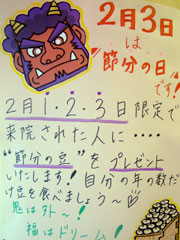 2月3日
は
節分の日
です!
2月1・2・3日限定で
来院された人に····
"節分の豆"をプレゼント
いたします!自分の年の数だ
け豆を食べましょう~
鬼は外~!
福はドリーム!